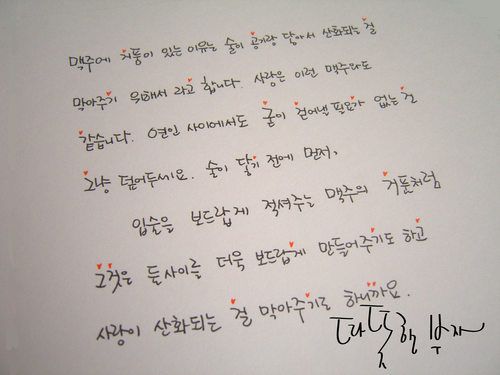 맥주에 거품이 있는 이유는 술이 공기랑 닿아서 산화되는 걸
막아주기 위해서 라고 합니다. 사랑은 이런 맥주와도
같습니다. 연인 사이에서도 굳이 걷어낼 필요가 없는 건
그냥 덮어두세요. 술이 닿기 전에 먼저,
입술을 보드랍게 적셔주는 맥주의 거품처럼
그것은 둘사이를 더욱 보드랍게 만들어주기도 하고
사랑이 산화되는 걸 막아주기도 하니까요.
따뜻한 부자